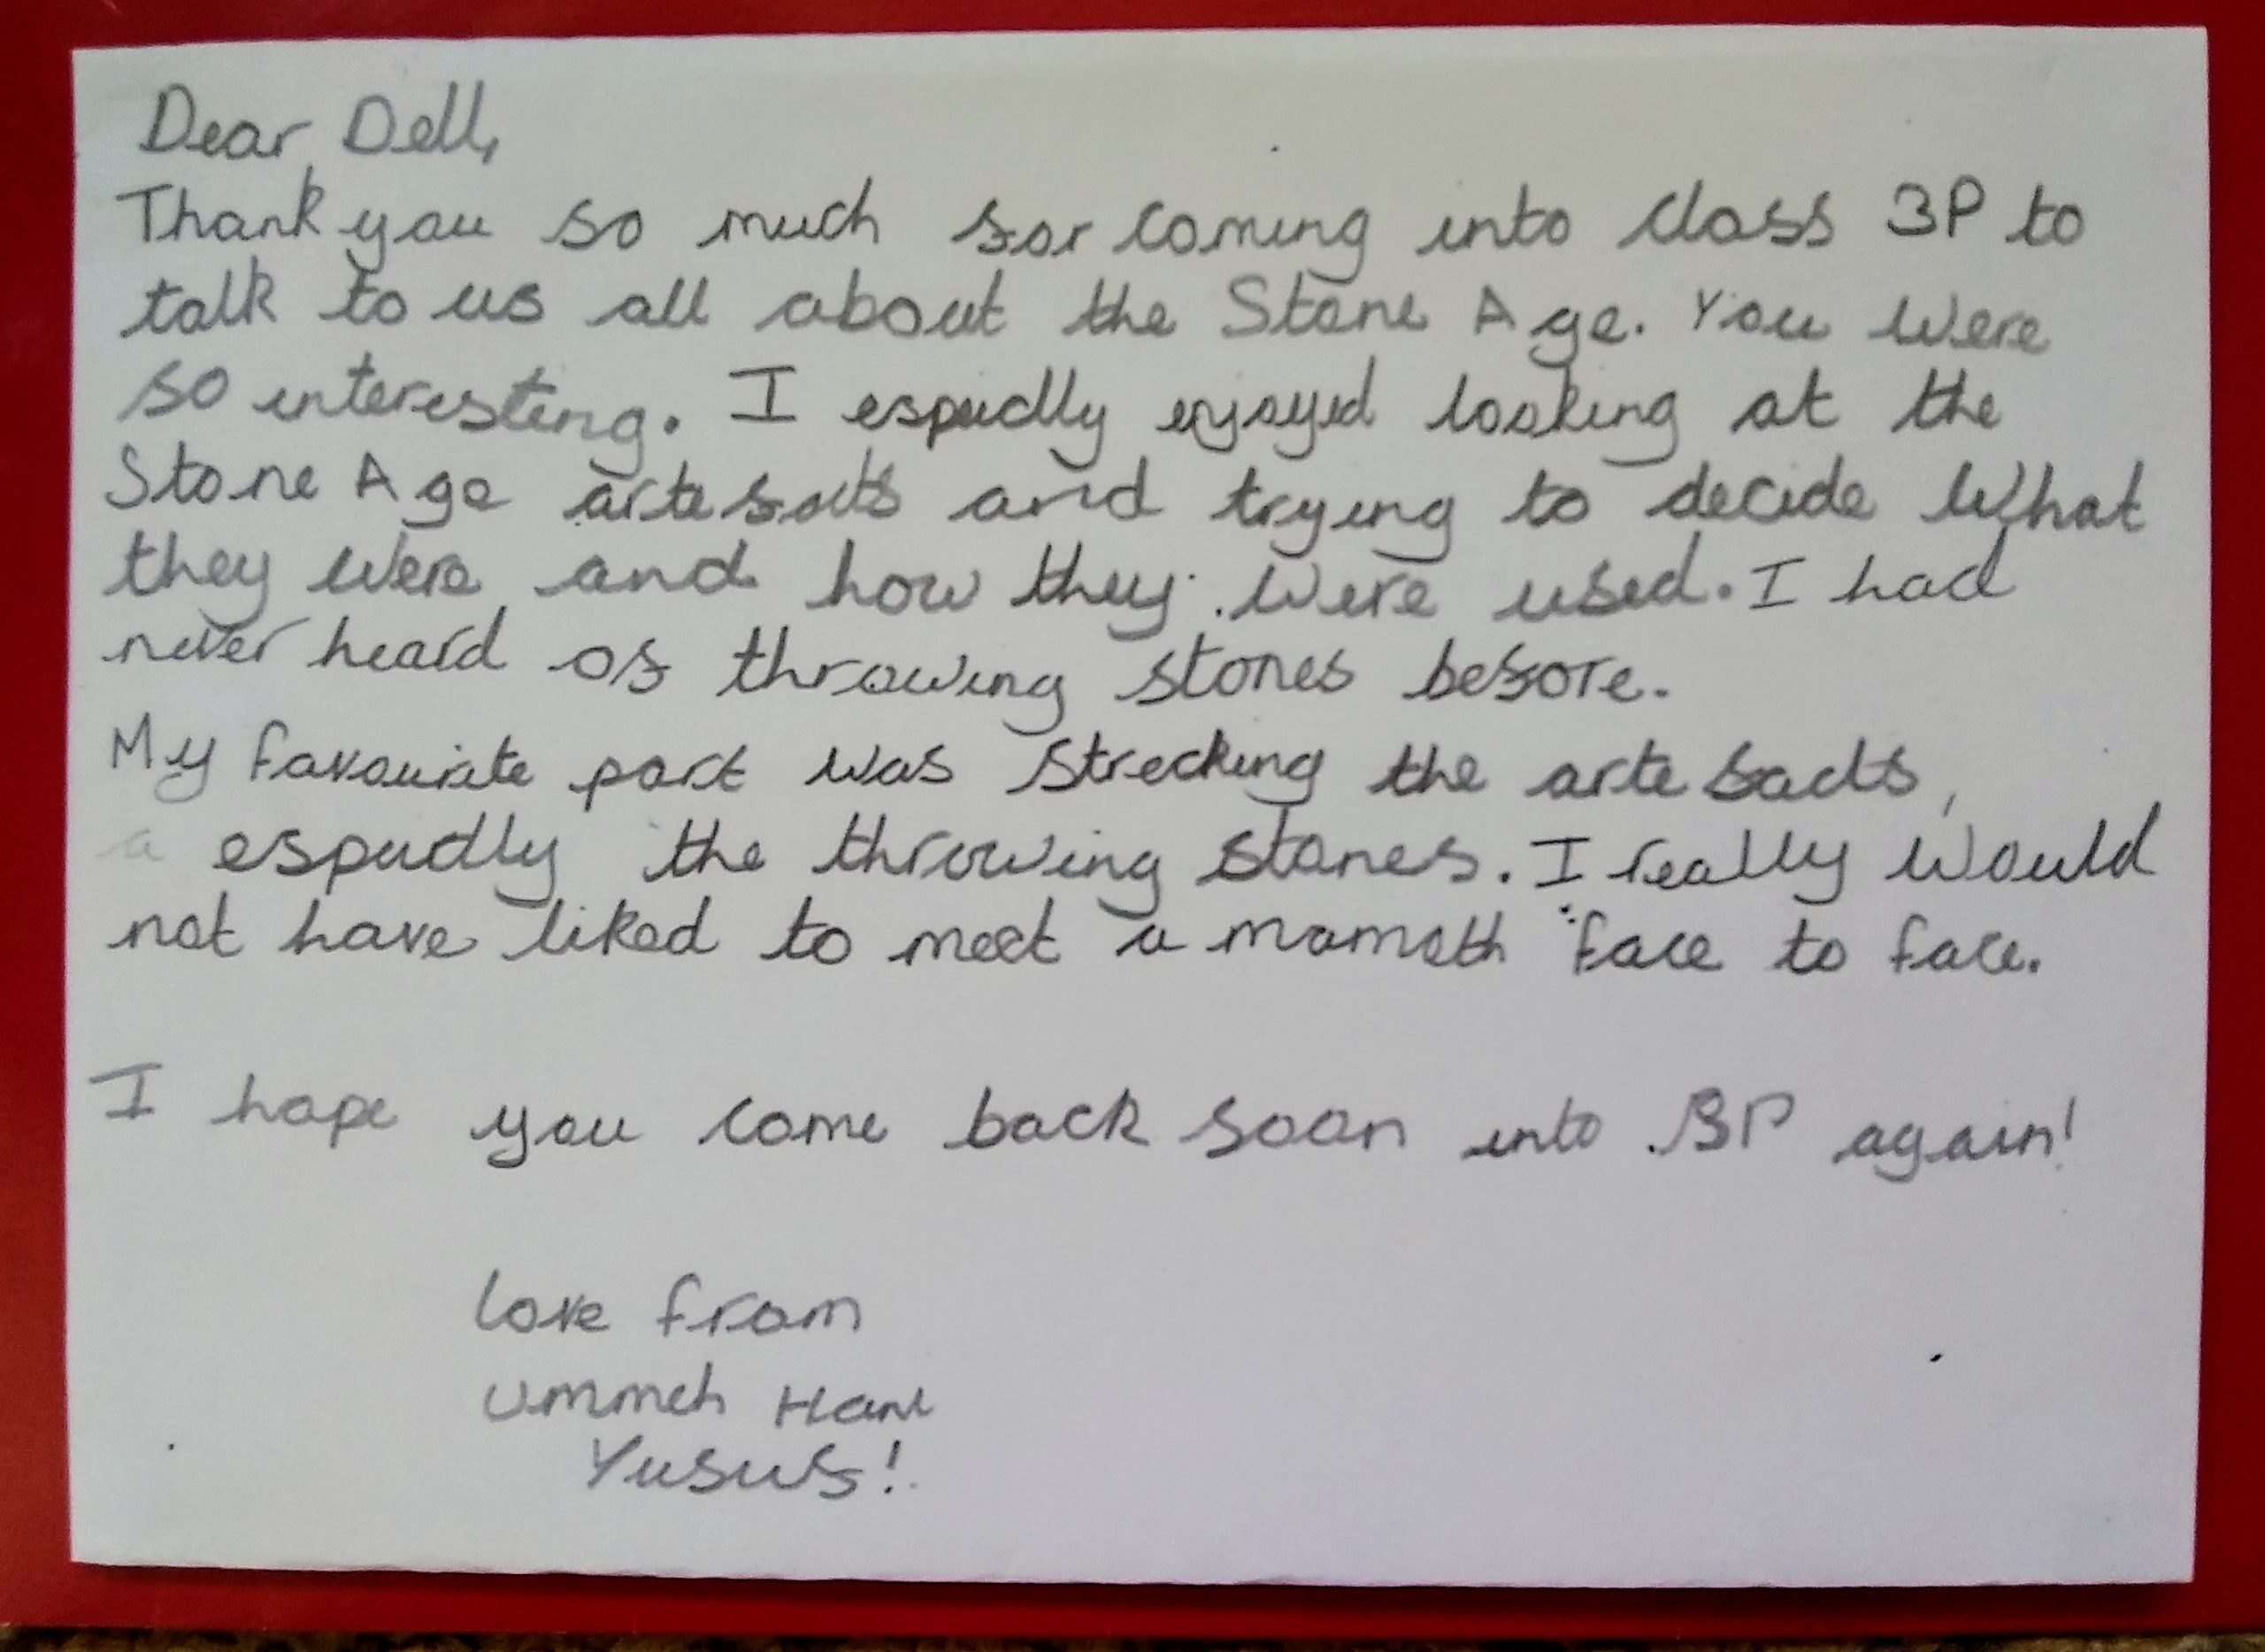 Dear Dell,
Thank you so much for coming into class 3P to
talk to us all about the Stone Age. You were
so interesting. I espically enjoyed looking at the
Stone Age artefacts and trying to decide what
they were and how they were used. I had
never heard of throwing stones before.
My favouriate part was strecking the artefacts,
espically the throwing stones. I really would
not have liked to meet a mamoth face to face.
I hope you come back soon into 3P again!
love from
Ummeh Hani
Yusuf!